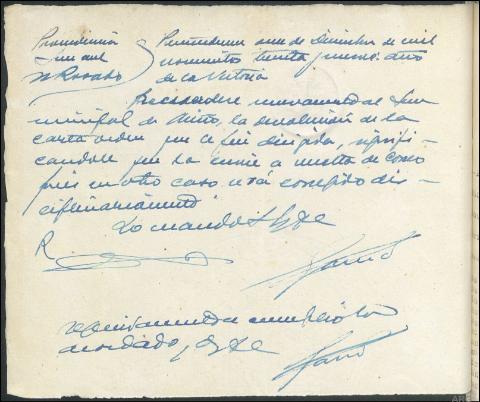 Providencia
Juez
Rosado
Pontevedra once de Diciembre de mil
novecientos treinta y nueve. año
de la Victoria
Recuérdese nuevamente al Juez
municipal de la devolución de la
carta orden que le fué dirigida, signifi-
candole que la envie a vuelta de correo
pues en otro caso será corregido dis-
ciplinariamente
Lo mando S Sª doy fe
R
seguidamente se cumplió lo
acordado, doy fe